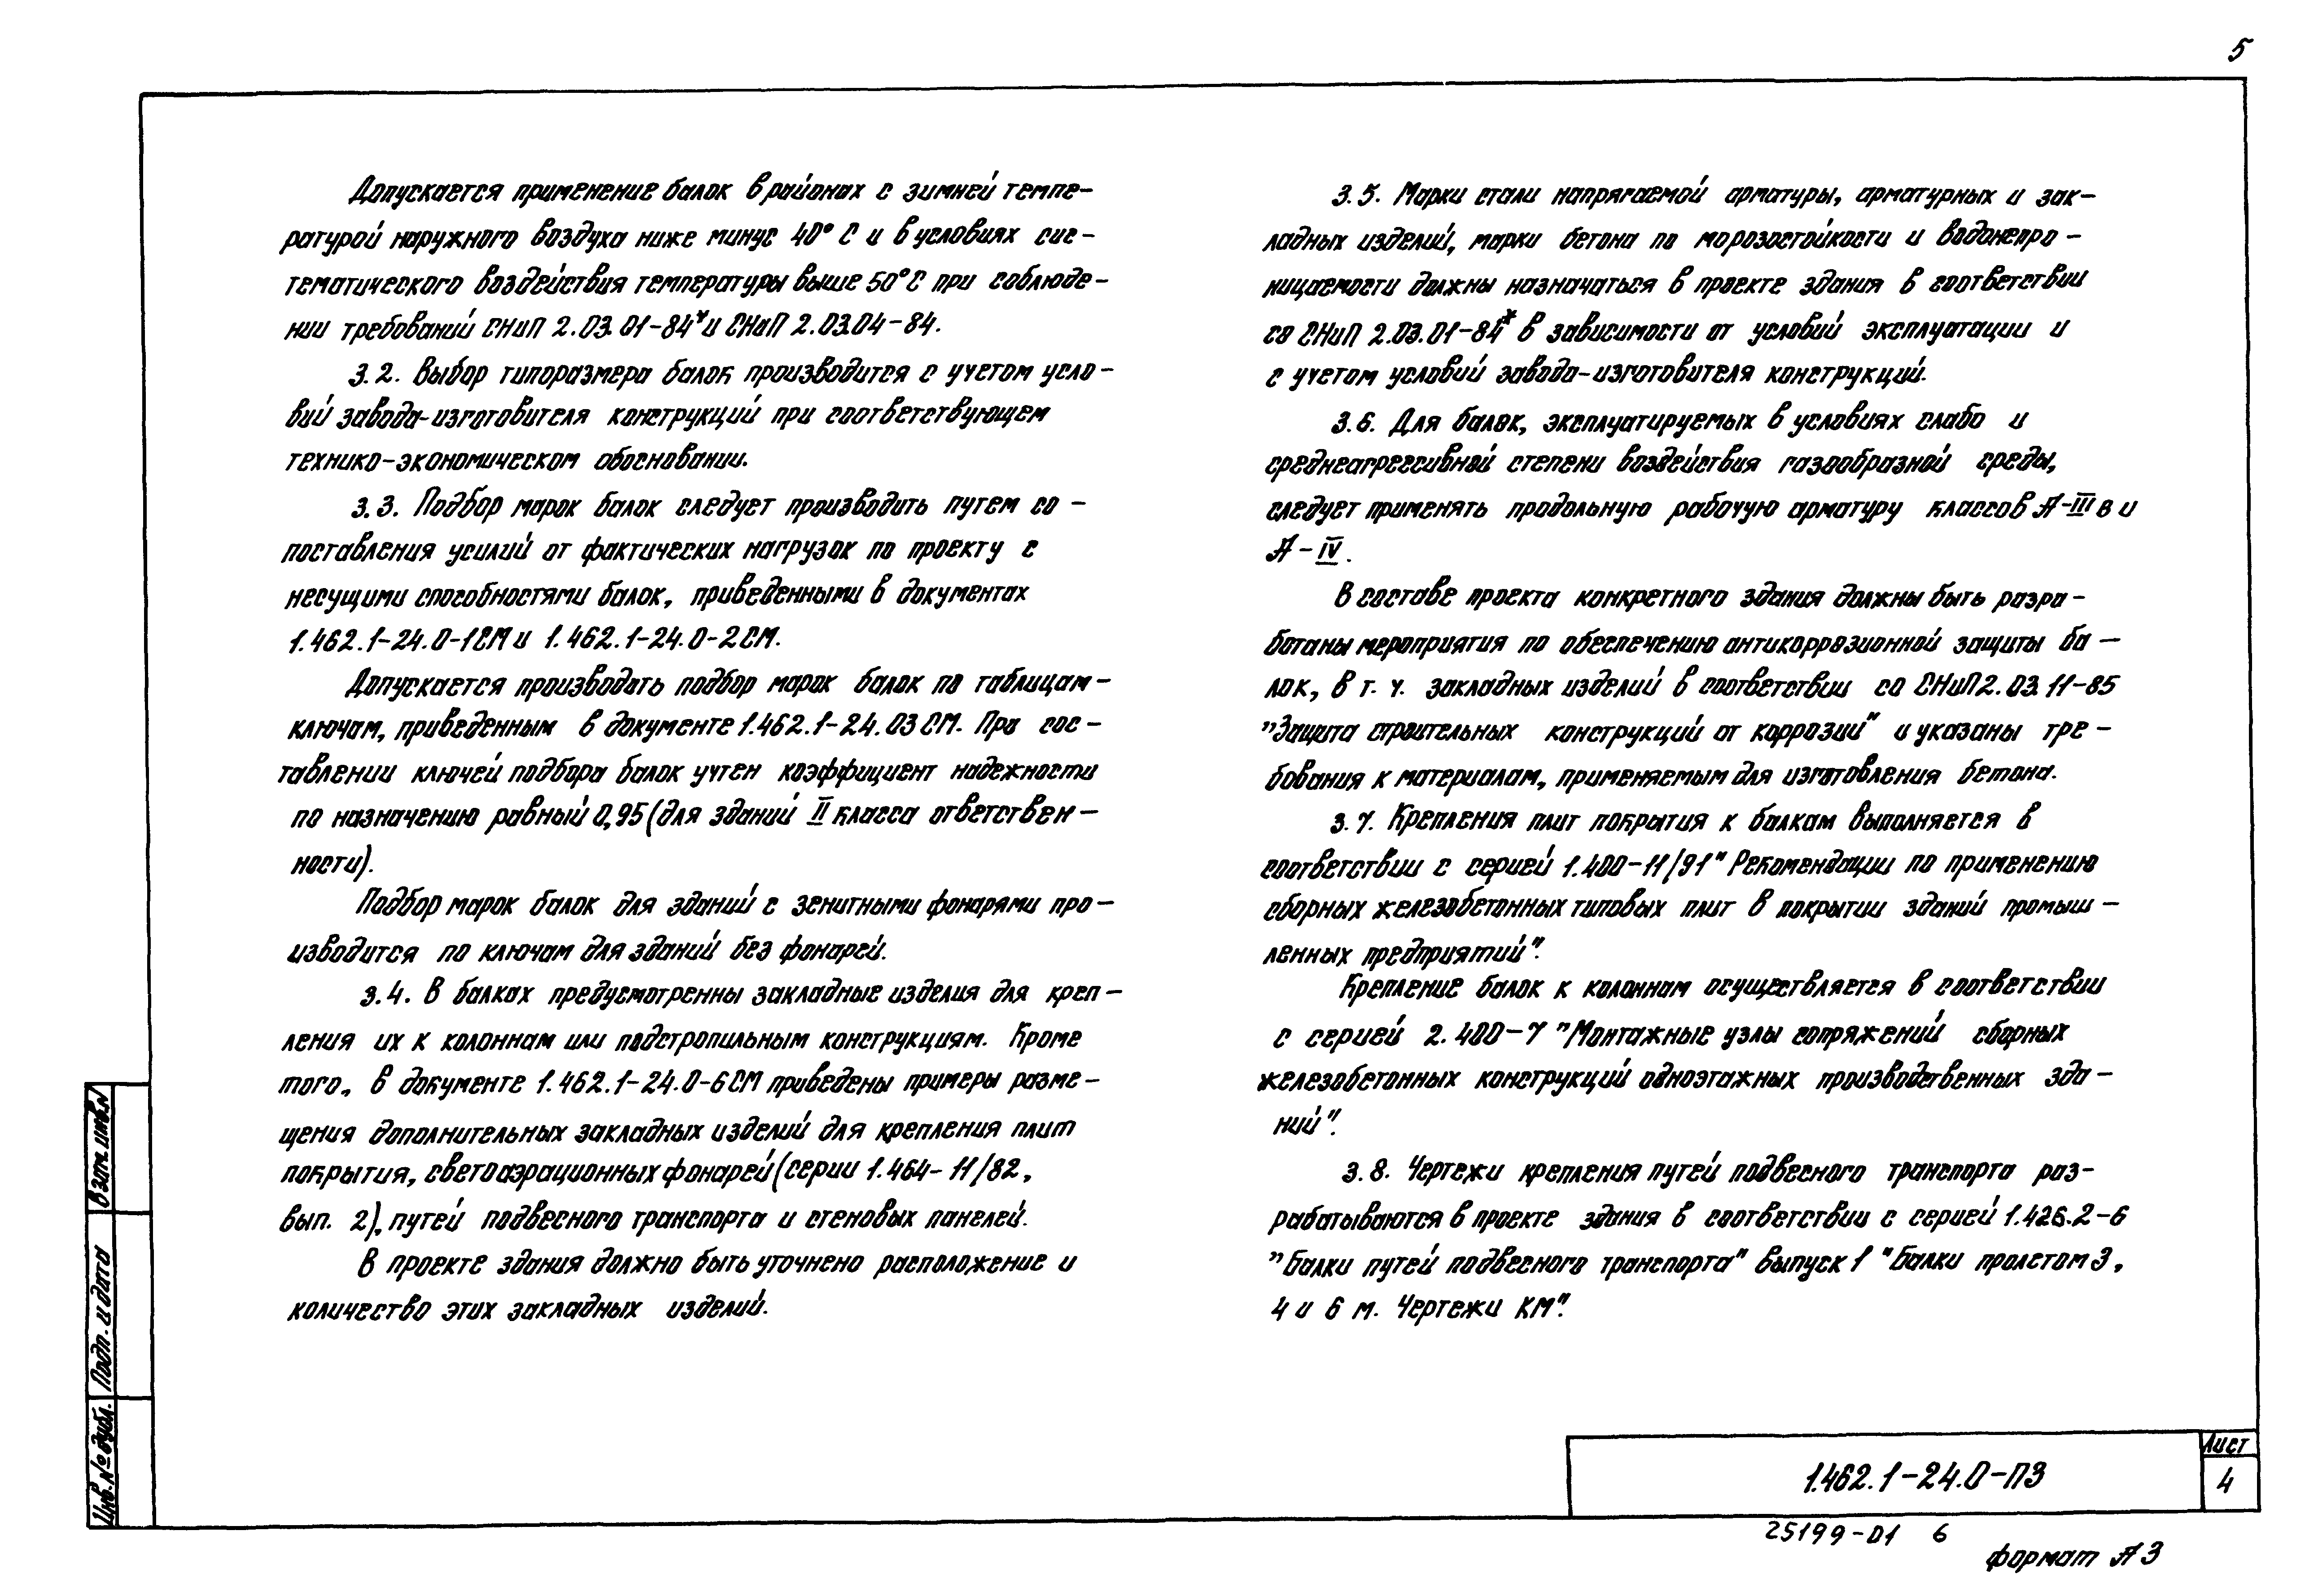 5
Допускается применение балок в районах с зимней темпе-
ратурой наружного воздуха ниже минус 40° С и в условиях сис-
тематического воздействия температуры выше 50°С при соблюде-
нии требований СНиП 2.03.01-84* и СНиП 2.03.04-84.
3.2. Выбор типоразмера балок производится с учетом усло-
вий завода-изготовителя конструкций при соответствующем
технико-экономическом обосновании.
3.3. Подбор марок балок следует производить путем со-
поставления усилий от фактических нагрузок по проекту с
несущими способностями балок, приведенными в документах
1.462.1-24.0-1СМ и 1.462.1-24.0-2СМ.
Допускается производить подбор марок балок по таблицам-
ключам, приведенным в документе 1.462.1-24.03СМ. При сос-
тавлении ключей подбора балок учтен коэффициент надежности
по назначению равный 0,95 (для зданий II класса ответствен-
ности).
Подбор марок балок для зданий с зенитными фонарями про-
изводится по ключам для зданий без фонарей.
3.4. В балках предусмотренны закладные изделия для креп-
ления их к колоннам или подстропильным конструкциям. Кроме
того, в документе 1.462.1-24.0-6СМ приведены примеры разме-
щения дополнительных закладных изделий для крепления плит
покрытия, светоаэрационных фонарей (серии 1.464-11/82,
вып. 2), путей подвесного транспорта и стеновых панелей.
В проекте здания должно быть уточнено расположение и
количество этих закладных изделий.
3.5. Марки стали напрягаемой арматуры, арматурных и зак-
ладных изделий, марки бетона по морозостойкости и водонепро-
ницаемости должны назначаться в проекте здания в соответствии
со СНиП 2.03.01-84* в зависимости от условий эксплуатации и
с учетом условий завода-изготовителя конструкций.
3.6. Для балок, эксплуатируемых в условиях слабо и
среднеагрессивной степени воздействия газообразной среды,
следует применять продольную рабочую арматуру классов А-III в и
А-IV.
В составе проекта конкретного здания должны быть разра-
ботаны мероприятия по обеспечению антикоррозионной защиты ба-
лок, в т. ч. закладных изделий в соответствии со СНиП 2.03.11-85
"Защита строительных конструкций от коррозий" и указаны тре-
бования к материалам, применяемым для изготовления бетона.
3.7. Крепления плит покрытия к балкам выполняется в
соответствии с серией 1.400-11/91 "Рекомендации по применению
сборных железобетонных типовых плит в покрытии зданий промыш-
ленных предприятий".
Крепление балок к колоннам осуществляется в соответствии
с серией 2.400-7 "Монтажные узлы сопряжений сборных
железобетонных конструкций одноэтажных производственных зда-
ний".
3.8. Чертежи крепления путей подвесного транспорта раз-
рабатываются в проекте здания в соответствии с серией 1.426.2-6
"Балки путей подвесного транспорта" выпуск 1 "Балки пролетом 3,
4 и 6 м. Чертежи КМ".
Взам. инв. N
Подп. и дата
Инв. № дубл.
1.462.1-24.0-ПЗ
Лист
4
25199-01 6
формат А3